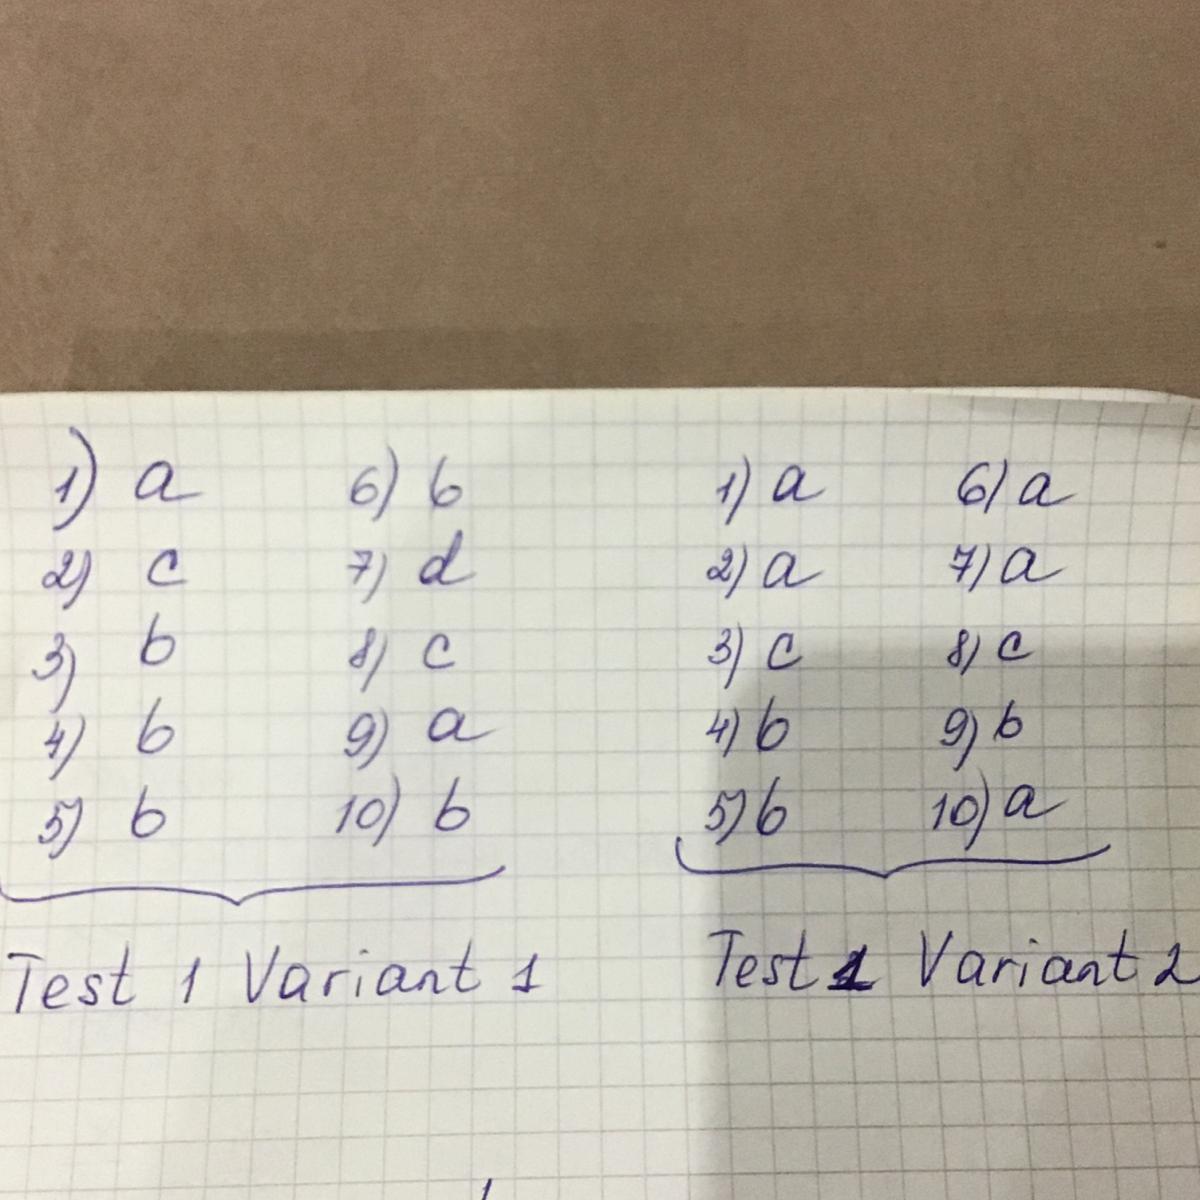 1) a 6) b 1) a 6) a
2) c 7) d 2) a 7) a
3) b 8) c 3) c 8) c
4) b 9) a 4) b 9) b
5) b 10) b 5) b 10) a
Test 1 Variant 1 Test 1 Variant 2